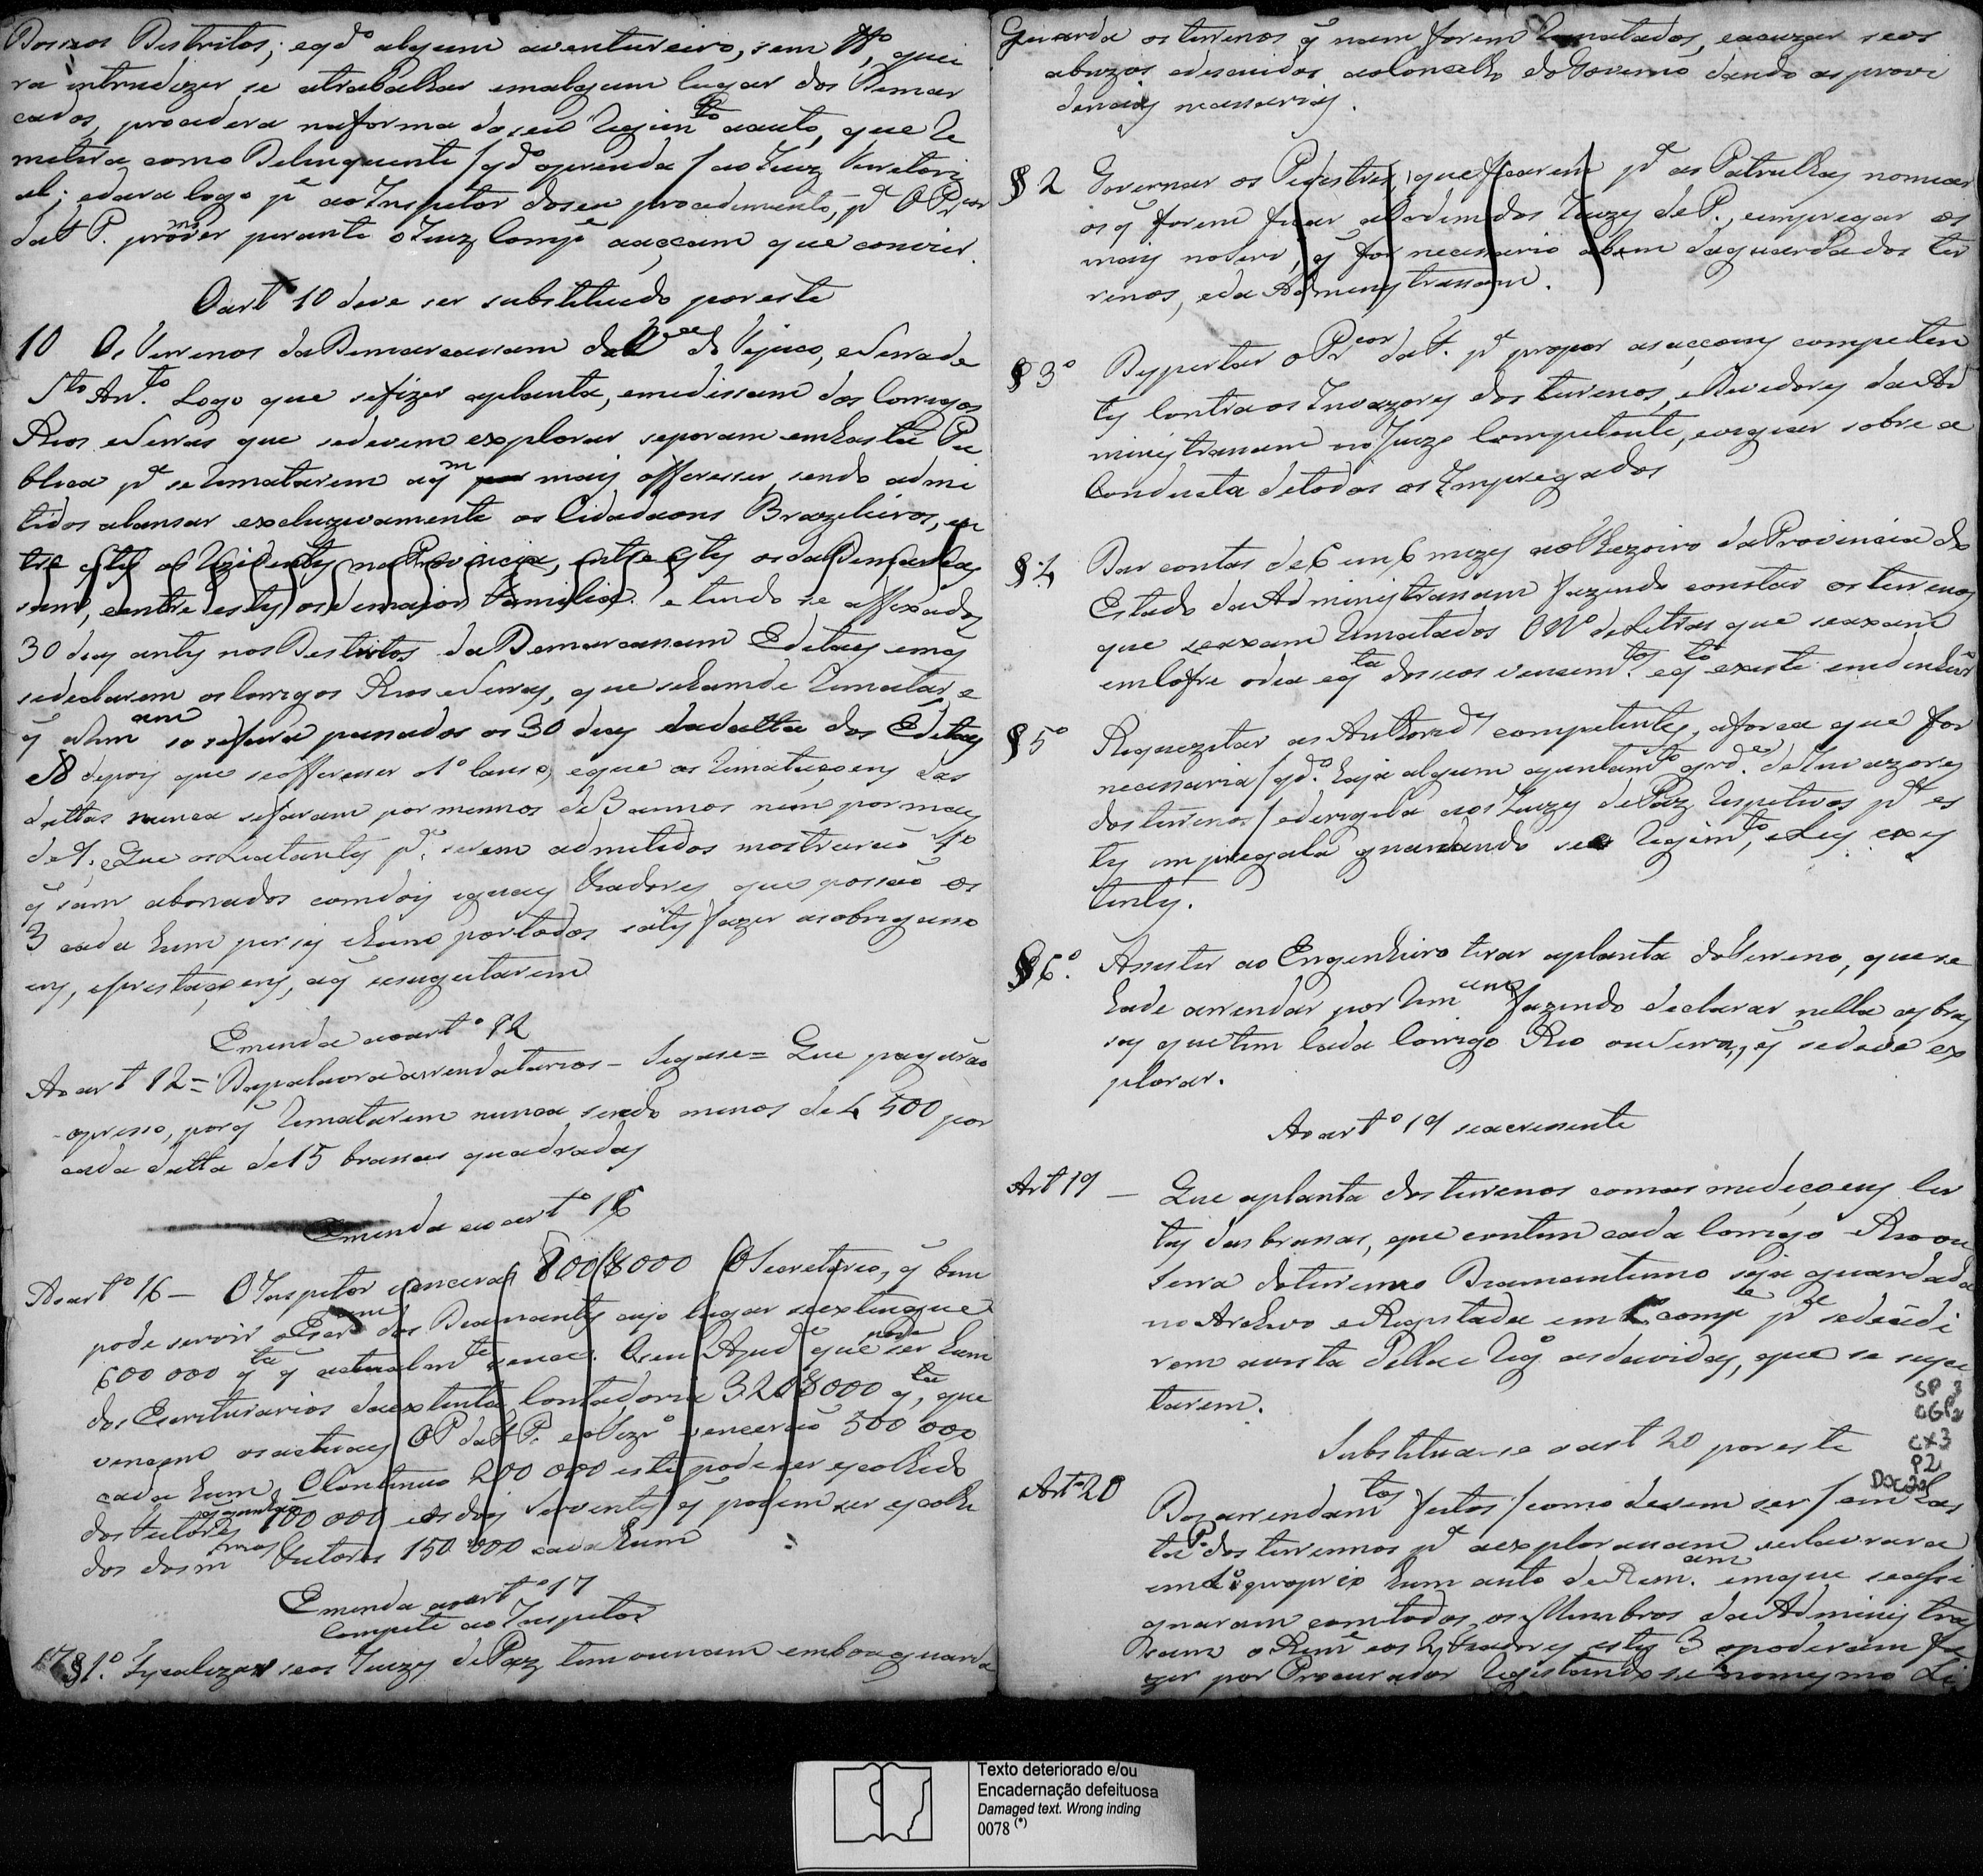 Distritos; eqdº algum aventureiro, sem
ra intruduzer se atrabalhar emalgum lugar dos Demar
cados, procedera naforma doseo Regimto auto, que Re
metera como Delinquente / qdº aprenda / ao Juiz Territori
al; edara logo pe ao Inspetor doseu procedimento, pa O Prcor
da F. P. promover perante o Juiz Compe aaccam que convier.
Oartº 10 deve ser substituido poreste
10 Os Terrenos daDemarcassam do Tejuco, eSerra de
Sto Anto. Logo que sefizer aplanta, emedissam dos Corregos
Rios eSerras que sedevem explorar seporam emhasta Pu
blica pa se Rematarem aqm mais offeresser, sendo admi
tidos alansar excluzivamente os Cidadaons Brazileiros, en
tre estes os Rezidentes na Provincia, entre estes os da Demarcas
sam, eentre estes os demaior Familia. e tendo se affixado
30 dias antes nos Destritos da Demarcassam Editaes emq
sedeclarem oslorrigos Rios eSerras, que seham de Rematar, e
q aRemam so sefará passados os 30 dias dadatta dos Editaes
e8 depois que seofferesser o 1º lanso, eque as Rematações das
dattas nunca sefaram por menos de 3 annos nem pormais
de 9. Que osLicitantes pa. serem admitidos mostrarão
q sam abonados comdois iguaes Fiadores que possão os
3 cada hum persi ehum portodos satisfazer asobrigasso
ens, eprestaçoens, aq sesugeitarem
Emenda aoartº 12
Ao artº 12 = Dapalavra arrendatarios - Segase = Que pagarão
opresso, porq Rematarem nunca sendo menos de 4 500 por
cada datta de 15 brassas quadradas
Emenda ao artº 16
Aoartº 16 - O Inspetor vencera 800$000 O Secretario, q bem
pode servir oEscram dos Diamantes cujo lugar seextingue
600 000 qta q actualmte vence. Oseu Ajude que pode ser hum
dos Escriturarios daextinta Contadoria 320$000 qta, que
vencem osactuaes OP da F P. eoTezrº vencerão 500 000
cada hum, OContinuo 200 000 este pode ser escolhido
dos Feitores 100 000 eos dois Serventes q podem ser escolhi
dos dosmmos Feitores 150 000 cada hum
Emenda aoartº 17
Compete ao Inspetor
17 §1.º Fiscalizar seos Juizes dePaz tem emboaguarda
Guarda osterrenos q nam forem Rematados, eacuzar seos
abuzos edescuidos aoConcelho doGoverno dando asprovi
dencias necessarias.
§ 2 Governar os Pedestres, que ficarem pa as Patrulhas nomear
osq forem ficar a Ordem dos Juizes deP., eempregar os
mais noServ, q for necessario abem daguarda dos ter
renos, eda Administrassam.
§ 3º Dyspertar o Prcor daF. pa propor asaccoens competen
tes Contra os Invazores dos terrenos, eDevedores da Ad
ministrassam no Juizo Competente, evegiar sobre a
Conducta detodos os Empregados
§ 4 Dar contas de 6 em 6 mezes aoThezoiro daProvincia do
Estado daAdministrassam fazendo constar os terrenos
que seaxam Rematados O Nº deLetras que seaxam
emCofre odia eqta dos seos vensemtos. eqto existe emdinhrº
§ 5º Requezitar as Authorides competentes, aforca que for
necessaria / qdº. haja algum ajuntamto grde. deInvazores
dos terrenos / ederigila aos Juizes dePaz Respetivos pa es
tes impregala guardando seo Regimto, eLeis exis
tentes.
§ 6º. Assister ao Engenheiro tirar aplanta doterreno, quese
hade arrendar por Remam fazendo declarar nella asbras
sas quetem Cada Corrego Rio ouSerra, q sedeve ex
plorar.
Ao artº 19 seacressente
Art 19 - Que aplanta dos terrenos comas medeçoens cer
tas das brassas, que contem cada Corrego Rio ou
Serra doterreno Diamantino seja guardada
no Archivo eRegistada em Lº compete pa sedecidi
rem avista Della as duvidas, que se susci
tarem.
SP 3
CX3
P2
Substitua-se o art 20 por este
Artº 20 Dos arrendamtos feitos / como devem ser / em has
ta P. dos terrennos pa aexplorassam selavrara
em Lº proprio hum auto deRem.am emque seassi
gnaram comtodos os Membros da Adminis tras
sam o Reme eos 2 Fiadores estes 3 opoderam fa
zer por Procurador Registando se no mesmo Li
Texto deteriorado e/ou
Encadernação defeituosa
Damaged text. Wrong inding
0078 (*)